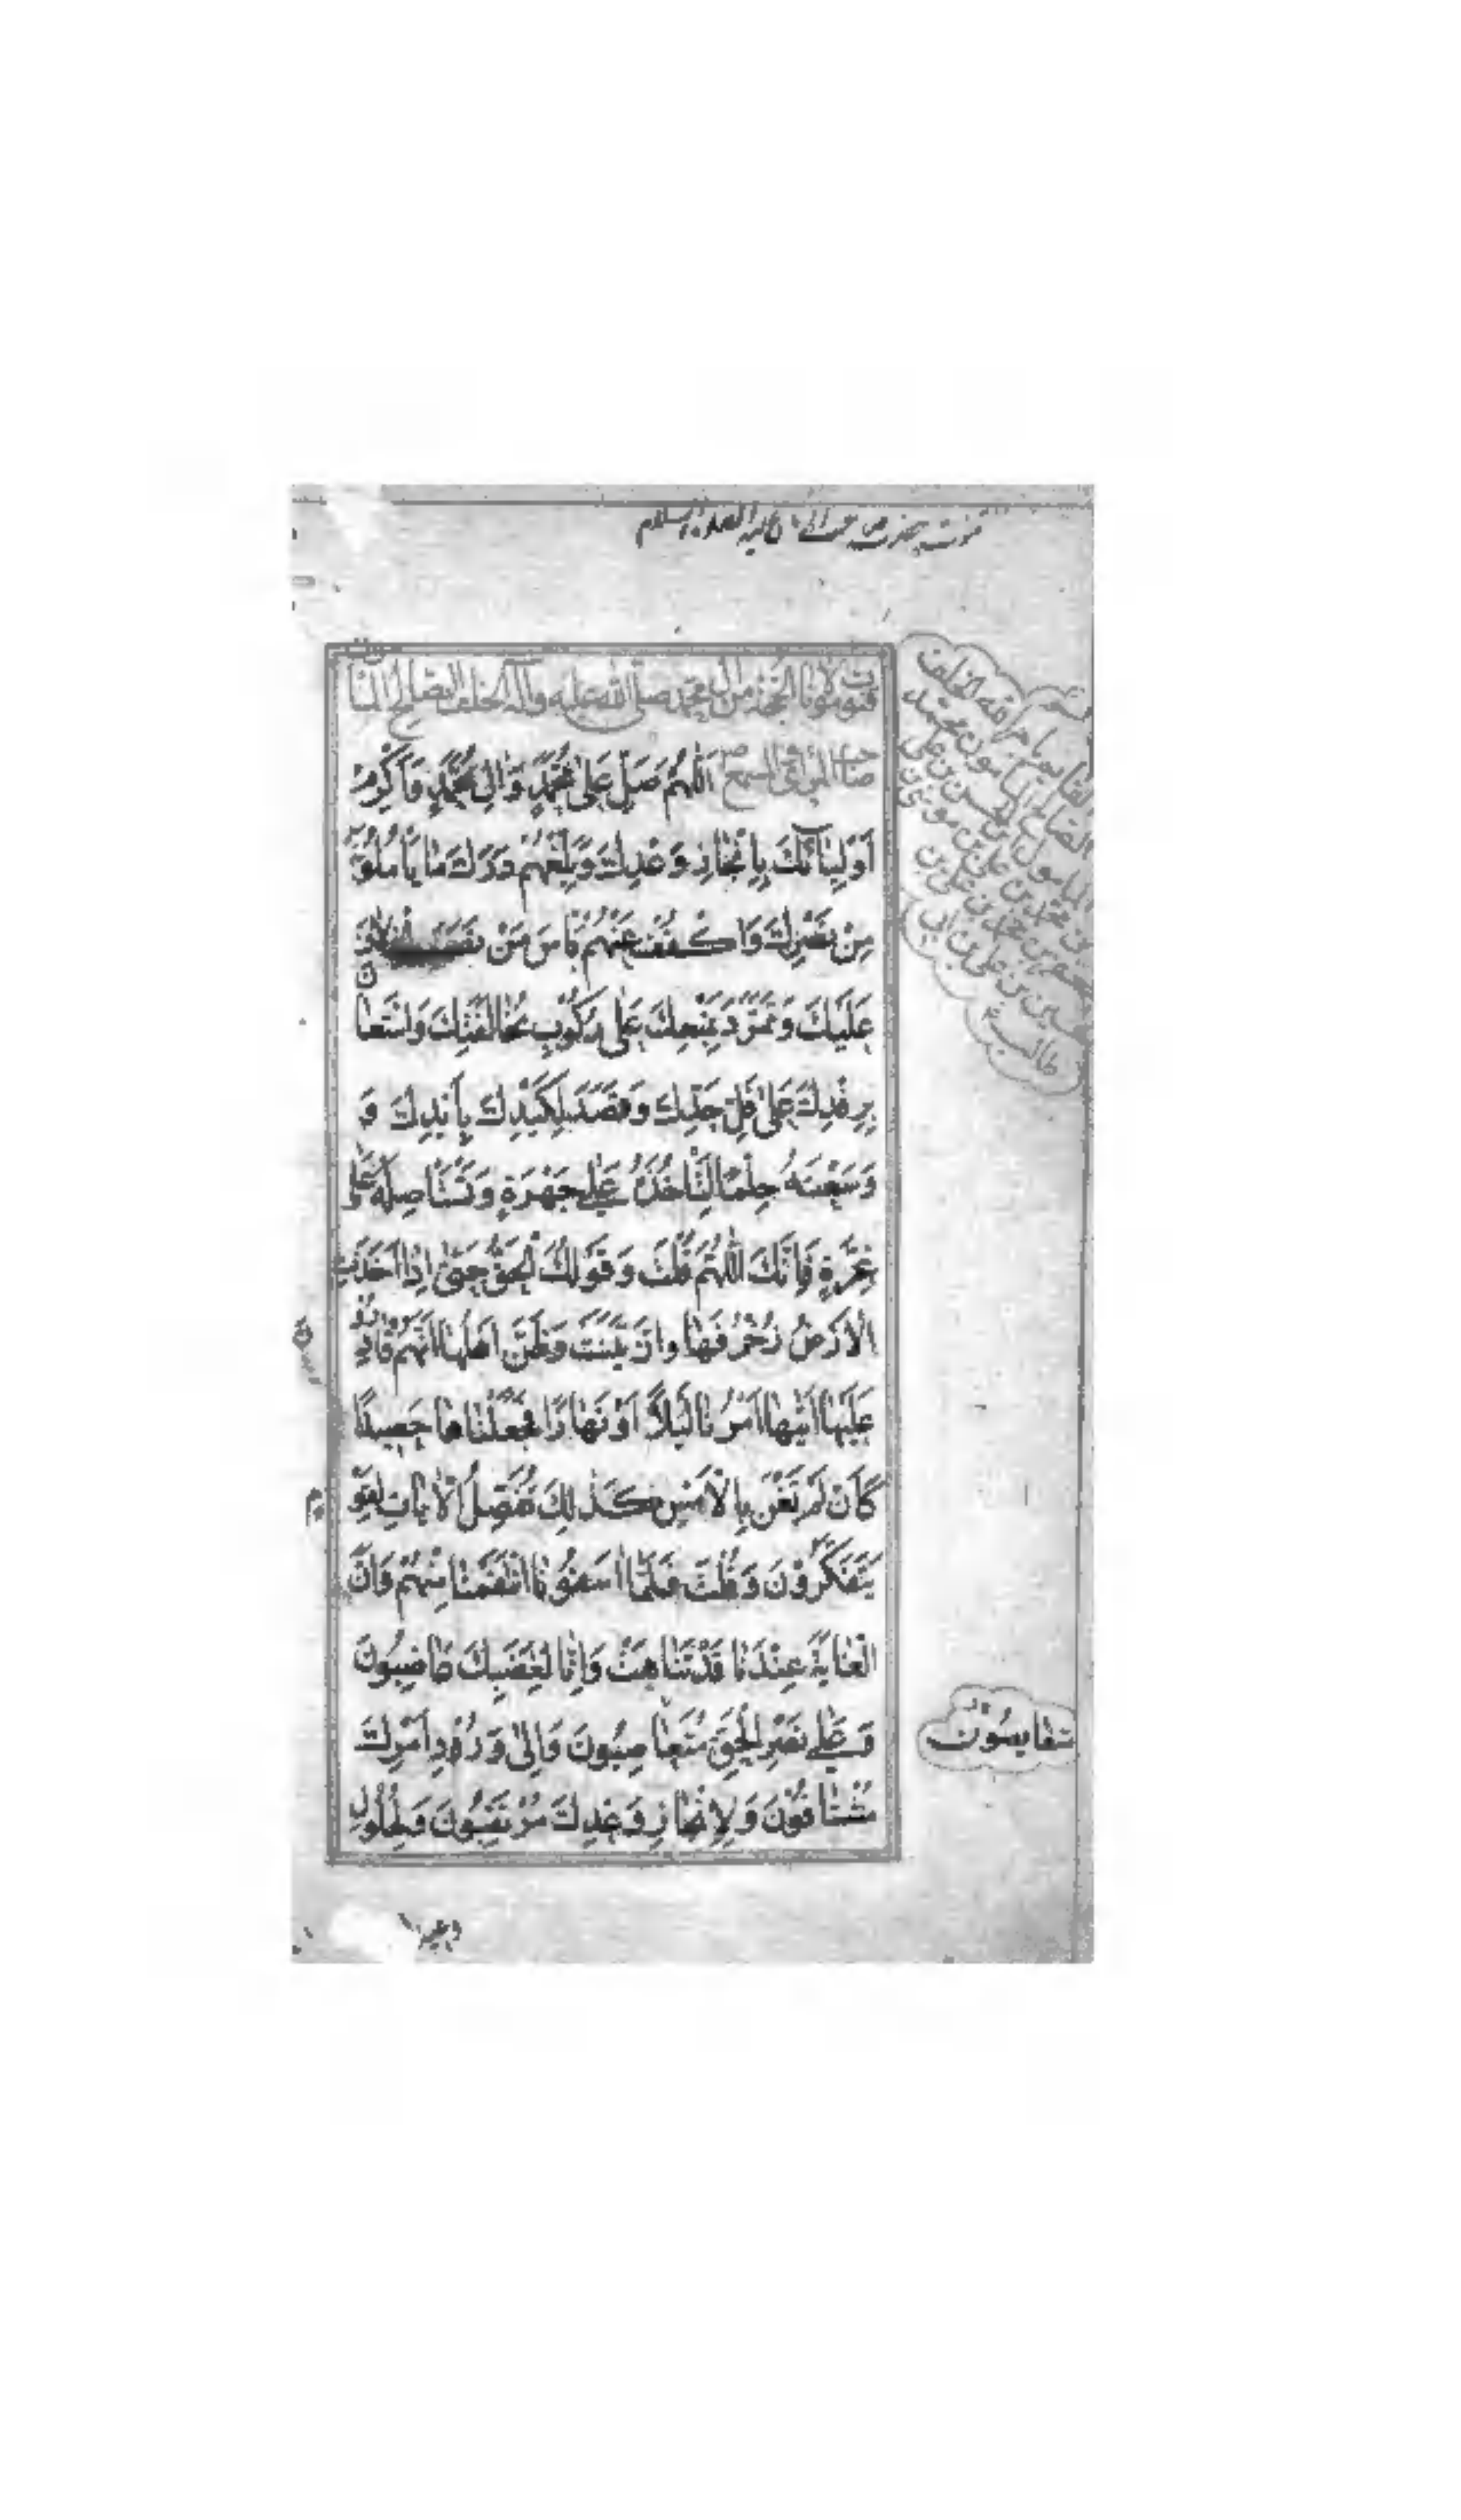 قنوت حضرت صاحب الزمان علیه الصلوة والسلام
قنوت مولانا الحجة من آل محمد صلی الله علیه وآله الخلف الصالح
اَللّٰهُمَّ صَلِّ عَلىٰ مُحَمَّدٍ وَآلِ مُحَمَّدٍ وَاَكْرِمْ
اَوْلِيٰائَكَ بِاِنْجٰازِ وَعْدِكَ وَبَلِّغْهُمْ دَرَكَ مٰا يَأمُلُونَ
مِنْ نَصْرِكَ وَاكْفُفْ عَنْهُمْ بَأسَ مَنْ
عَلَيْكَ وَتَمَرَّدَ بِمَنْعِكَ عَلىٰ رُكُوبِ مُخٰالَفَتِكَ وَاسْتَعٰانَ
بِرِفْدِكَ عَلىٰ فَلِّ حَدِّكَ وَقَصَدَ لِكَيْدِكَ بِاَيْدِكَ وَ
وَسَعْتَهُ حِلْمًا لِتَأخُذَهُ عَلىٰ جَهْرَةٍ وَتَسْتَأصِلَهُ عَلىٰ
غِرَّةٍ فَاِنَّكَ اللّٰهُمَّ قُلْتَ وَقَوْلُكَ الْحَقُّ حَتّىٰ اِذٰا اَخَذَتِ
الْاَرْضُ زُخْرُفَهٰا وَازَّيَّنَتْ وَظَنَّ اَهْلُهٰا اَنَّهُمْ قٰادِرُونَ
عَلَيْهٰا اَتٰيهٰا اَمْرُنٰا لَيْلًا اَوْ نَهٰارًا فَجَعَلْنٰاهٰا حَصِيدًا
كَاَنْ لَمْ تَغْنَ بِالْاَمْسِ كَذٰلِكَ نُفَصِّلُ الْاٰيٰاتِ لِقَوْمٍ
يَتَفَكَّرُونَ وَقُلْتَ فَلَمّٰا اٰسَفُونٰا انْتَقَمْنٰا مِنْهُمْ وَاِنَّ
الْغٰايَةَ عِنْدَنٰا قَدْ تَنٰاهَتْ وَاِنّٰا لِغَضَبِكَ غٰاضِبُونَ
وَعَلىٰ نَصْرِ الْحَقِّ مُتَعٰاصِبُونَ وَاِلىٰ وُرُودِ اَمْرِكَ
مُشْتٰاقُونَ وَلِاِنْجٰازِ وَعْدِكَ مُرْتَقِبُونَ وَلِحُلُولِ
القائم بامر الله الخلف
الصالح
محمد بن علي بن موسى بن
جعفر بن محمد بن علي بن
الحسين بن علي بن ابي
طالب